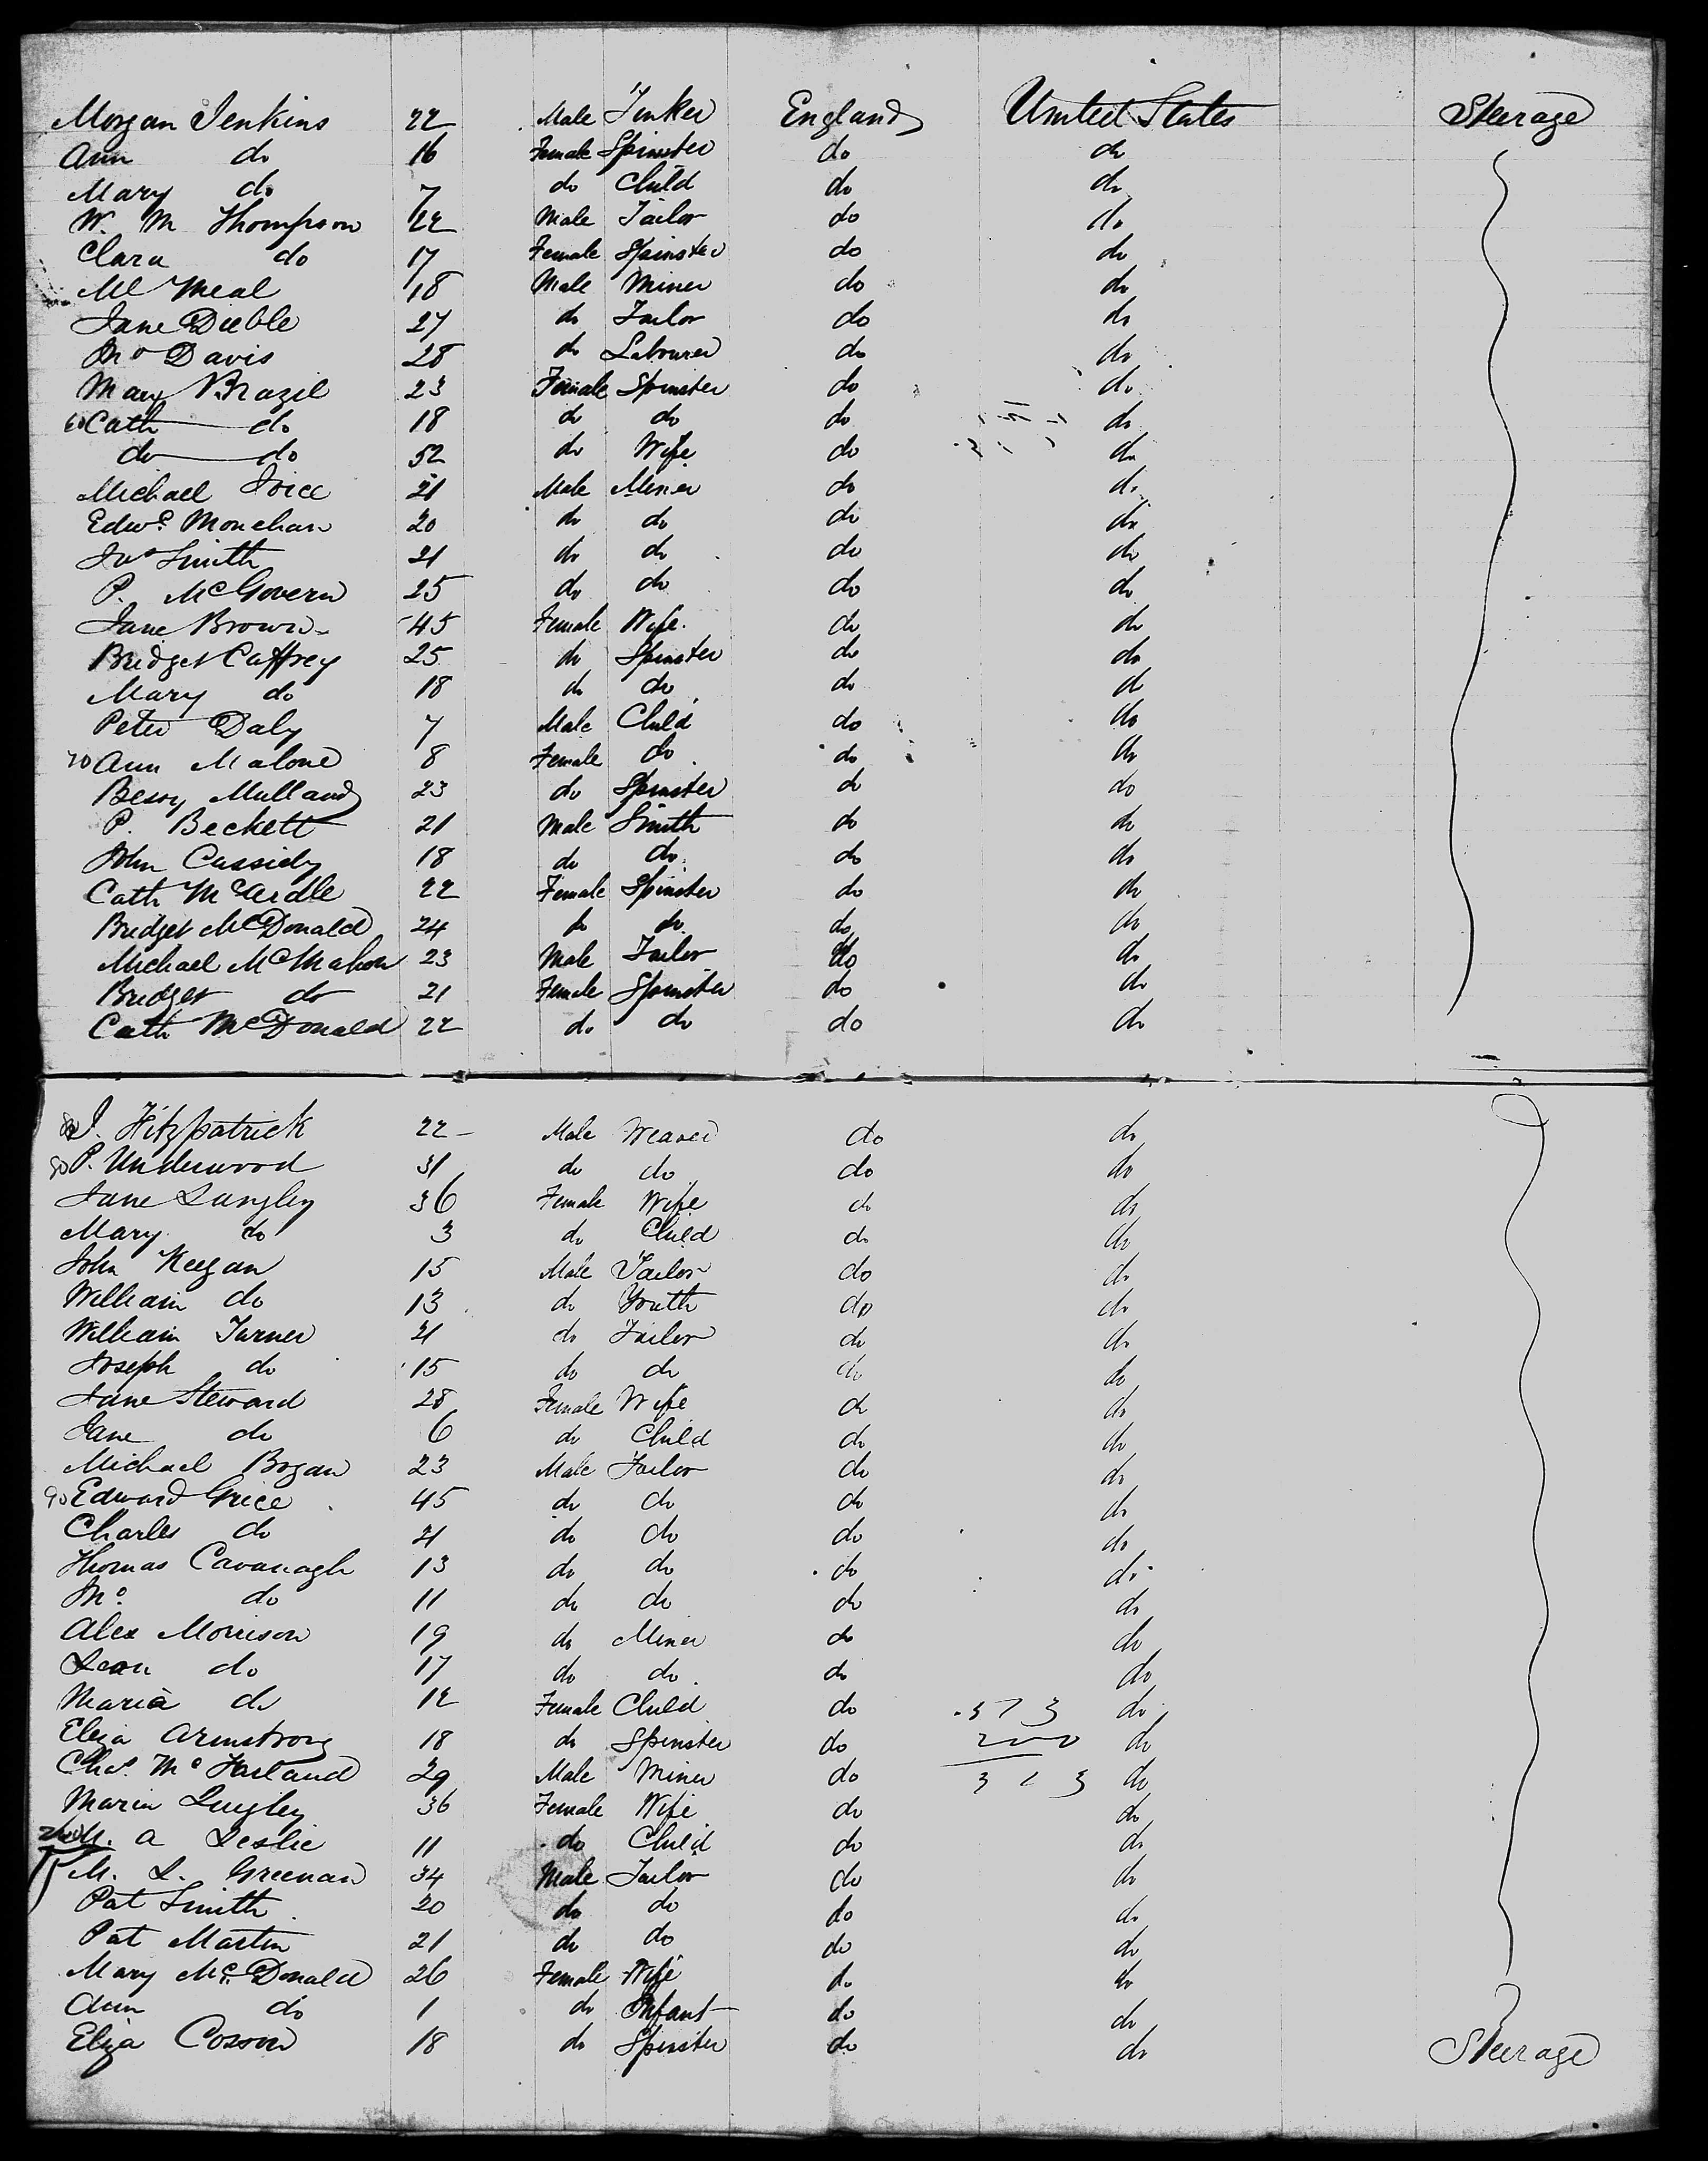 Morgan Jenkins 22 Male Tinker England United States Steerage
Ann do 16 Female Spinster do do
Mary do 7 do Child do do
W. M Thompson 22 Male Tailor do do
Clara do 17 Female Spinster do do
Ml Meal 18 Male Miner do do
Jane Dieble 27 do Tailor do do
Jno Davis 28 do Labourer do do
Mary Brazil 23 Female Spinster do do
60 Cath do 18 do do do do
do do 52 do Wife do do
Michael Joice 21 Male Miner do do
Edwd Monehan 20 do do do do
Jno Smith 21 do do do do
P. McGovern 25 do do do do
Jane Brown 45 Female Wife do do
Bridget Caffrey 25 do Spinster do do
Mary do 18 do do do do
Peter Daly 7 Male Child do do
70 Ann Malone 8 Female do do do
Bessy Mulland 23 do Spinster do do
P. Beckett 21 Male Smith do do
John Cassidy 18 do do do do
Cath McArdle 22 Female Spinster do do
Bridget McDonald 24 do do do do
Michael McMahon 23 Male Tailor do do
Bridget do 21 Female Spinster do do
Cath McDonald 22 do do do do
J. Fitzpatrick 22 Male Weaver do do
80 P. Underwood 31 do do do do
Jane Langley 36 Female Wife do do
Mary do 3 do Child do do
John Keegan 15 Male Tailor do do
William do 13 do Youth do do
William Turner 21 do Tailor do do
Joseph do 15 do do do do
Jane Steward 28 Female Wife do do
Jane do 6 do Child do do
Michael Bogan 23 Male Tailor do do
90 Edward Grice 45 do do do do
Charles do 21 do do do do
Thomas Cavanagh 13 do do do do
Jno do 11 do do do do
Alex Morrison 19 do Miner do do
Lean do 17 do do do do
Maria do 12 Female Child do 573 do
Eliza Armstrong 18 do Spinster do 200 do
Chas. McFarland 29 Male Miner do 313 do
Maria Lugley 36 Female Wife do do
M. A Leslie 11 do Child do do
M. L. Greenan 34 Male Tailor do do
Pat Smith 20 do do do do
Pat Martin 21 do do do do
Mary McDonald 26 Female Wife do do
Ann do 1 do Infant do do
Eliza Cosson 18 do Spinster do do Steerage